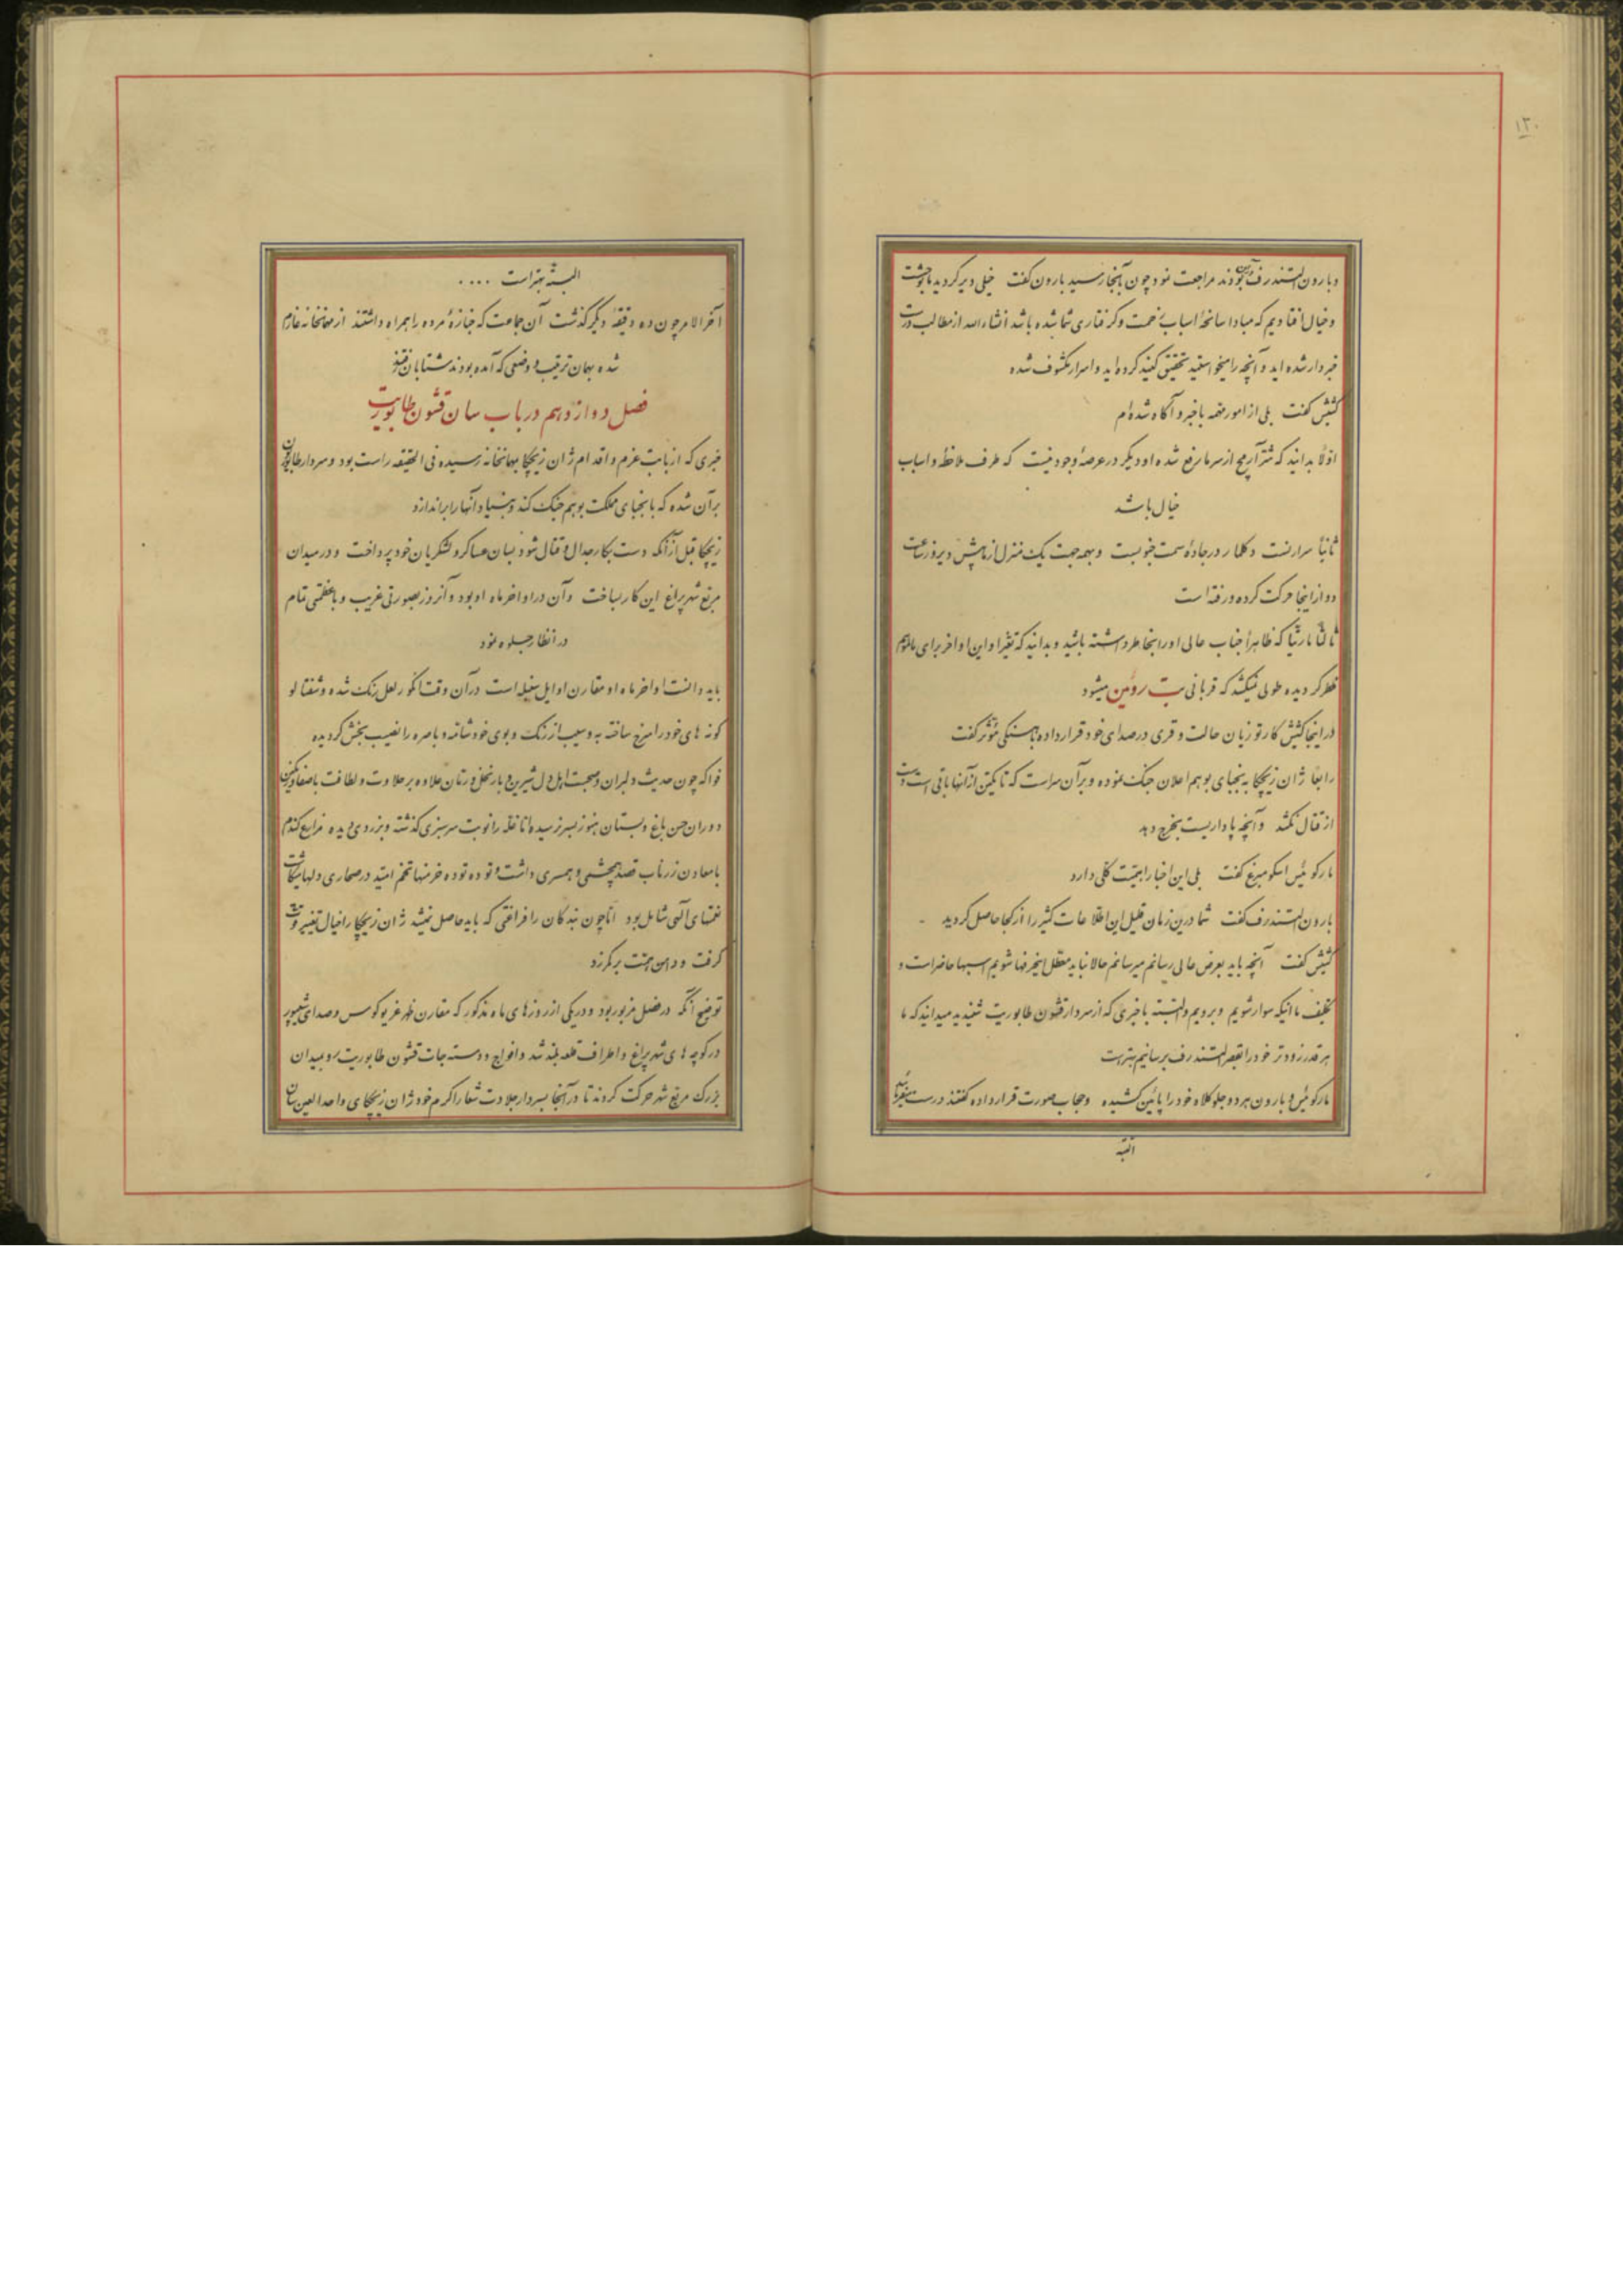 ۱۲۰
و بارون الستندرف آنجا بودند مراجعت نمود چون بآنجا رسید بارون گفت خیلی دیر کردید ما بوحشت
و خیال افتادیم که مبادا سانحهٔ اسباب زحمت و گرفتاری شما شده باشد انشاءالله از مطالب درست
خبردار شده‌اید و آنچه را میخواستید تحقیق کنید کرده‌اید و اسرار مکشوف شده
کشیش گفت بلی از امور مهمه باخبر و آگاه شده‌ام
اوّلاً بدانید که شرّ آرمج از سر ما رفع شده او دیگر در عرصهٔ وجود نیست که طرف ملاحظه و اسباب
خیال باشد
ثانیاً سرارنست دکلمار در جادهٔ سمت جنوبست و بهمه جهت یک منزل از ما پیش دیروز ساعت
دو از اینجا حرکت کرده و رفته است
ثالثاً مارتیا که ظاهراً جناب عالی او را بخاطر داشته باشید و بدانید که تقیّرا و این اواخر برای ما لازم
نظر گردیده طولی نمیکشد که قربانی بت روئین میشود
در اینجا کشیش کارتوزیان حالت وقری در صدای خود قرار داده بآهستگی مؤثر گفت
رابعاً ژان زیچکا به نجبای بوهم اعلان جنگ نموده و برآن سر است که تا یکتن از آنها باقی است دست
از قتال نکشد و آنچه پا داریست بخرج دهد
مارکوئیس اسکومبرغ گفت بلی این اخبار اهمیّت کلّی دارد
بارون الستندرف گفت شما درین زمان قلیل این اطلاعات کثیر را از کجا حاصل کردید
کشیش گفت آنچه باید بعرض عالی رسانم میرسانم حالا نباید معطل اینحرفها شویم اسبها حاضر است و
تکلیف ما اینکه سوار شویم و برویم و البتّه با خبری که از سردار قشون طابوریت شنیدید میدانید که ما
هر قدر زودتر خود را بقصر الستندرف برسانیم بهتر است
مارکوئیس و بارون هر دو جلو کلاه خود را پائین کشیده و حجاب صورت قرار داده گفتند درست میفرمائید
البتّه
البتّه بهتر است ....
آخرالامر چون ده دقیقهٔ دیگر گذشت آن جماعت که جنازهٔ مرده را همراه داشتند از مهمانخانه عازم
شده بهمان ترتیب و وضعی که آمده بودند شتابان رفتند
فصل دوازدهم در باب سان قشون طابوریت
خبری که از بابت عزم و اقدام ژان زیچکا بمهمانخانه رسیده فی الحقیقه راست بود و سردار طابوریان
برآن شده که با نجبای مملکت بوهم جنگ کند و بنیاد آنها را براندازد
زیچکا قبل از آنکه دست بکار جدال و قتال شود بسان عساکر و لشکریان خود پرداخت و در میدان
مربّع شهر پراغ این کار بساخت و آن در اواخر ماه اوبود و آنروز بصورتی غریب و با عظمتی تمام
در انظار جلوه نمود
باید دانست اواخر ماه او مقارن اوایل سنبله است در آن وقت انگور لعل رنگ شده و شفتالو
گونه‌های خود را سرخ ساخته به و سیب از رنگ و بوی خود شامّه و باصره را نصیب بخش گردیده
فواکه چون حدیث دلبران و صحبت اهل دل شیرین و بار نخل و رتان علاوه بر حلاوت و لطافت باصفا و رنگین
دوران حسن باغ و بستان هنوز بسر نرسیده امّا غلّه را نوبت سرسبزی گذشته و بزردی رسیده مزارع گندم
با معادن زر ناب قصد همچشمی و همسری داشت و توده توده خرمنها تخم امّید در صحاری دلها میکاشت
نعمتهای الهی شامل بود امّا چون بندگان را فراغتی که باید حاصل نمیشد ژان زیچکا را خیال تغییر وقت
گرفت و دامن همّت برکمر زد
توضیح آنکه در فصل مزبور بود و در یکی از روزهای ماه مذکور که مقارن ظهر غریو کوس و صدای شیپور
در کوچه‌های شهر پراغ و اطراف قلعه بلند شد و افواج و دسته‌جات قشون طابوریت رو بمیدان
بزرگ مربّع شهر حرکت کردند تا در آنجا بسردار جلادت شعار اکرم خود ژان زیچکای واحدالعین سان